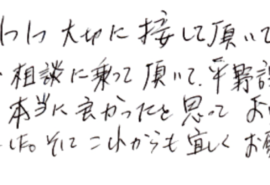 大切に接して頂いて
相談に乗って頂いて、平野
本当に良かったと思って お
した。そして これからも宜しく お